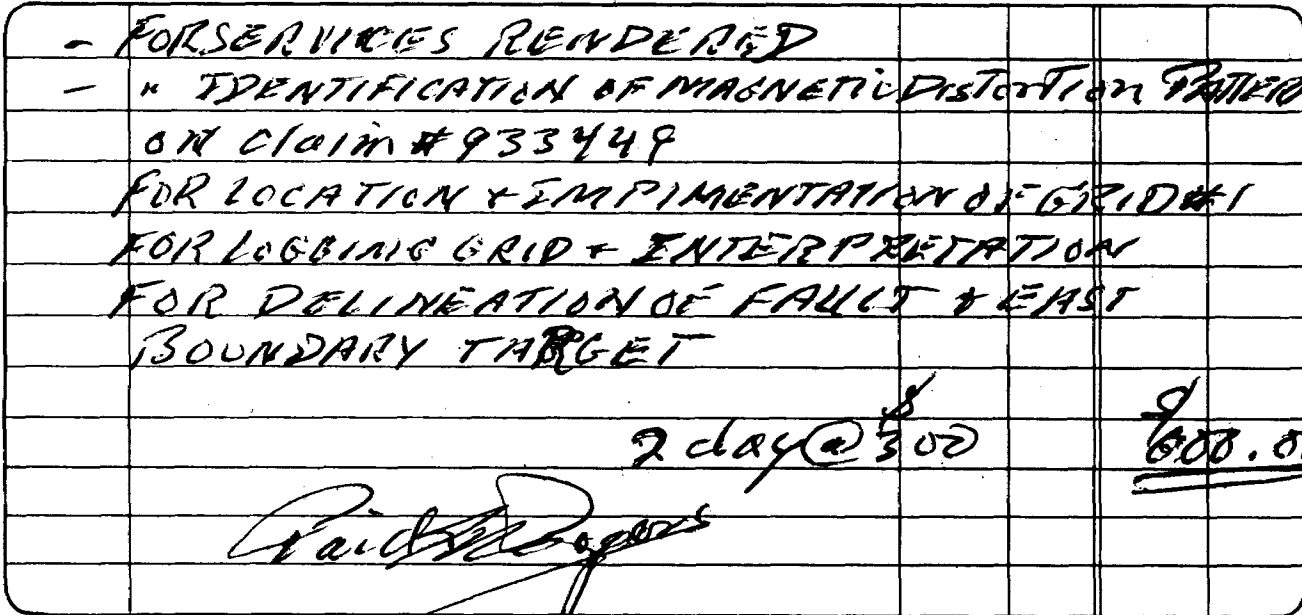 - FOR SERVICES RENDERED
- " IDENTIFICATION OF MAGNETIC DISTORTION PATTER
ON Claim # 933449
FOR LOCATION + IMPIMENTATION OF GRID #1
FOR LOGGING GRID + INTERPRETATION
FOR DELINEATION OF FAULT + EAST
BOUNDARY TARGET
2 day @ $300 $600.0
Paid Rogers